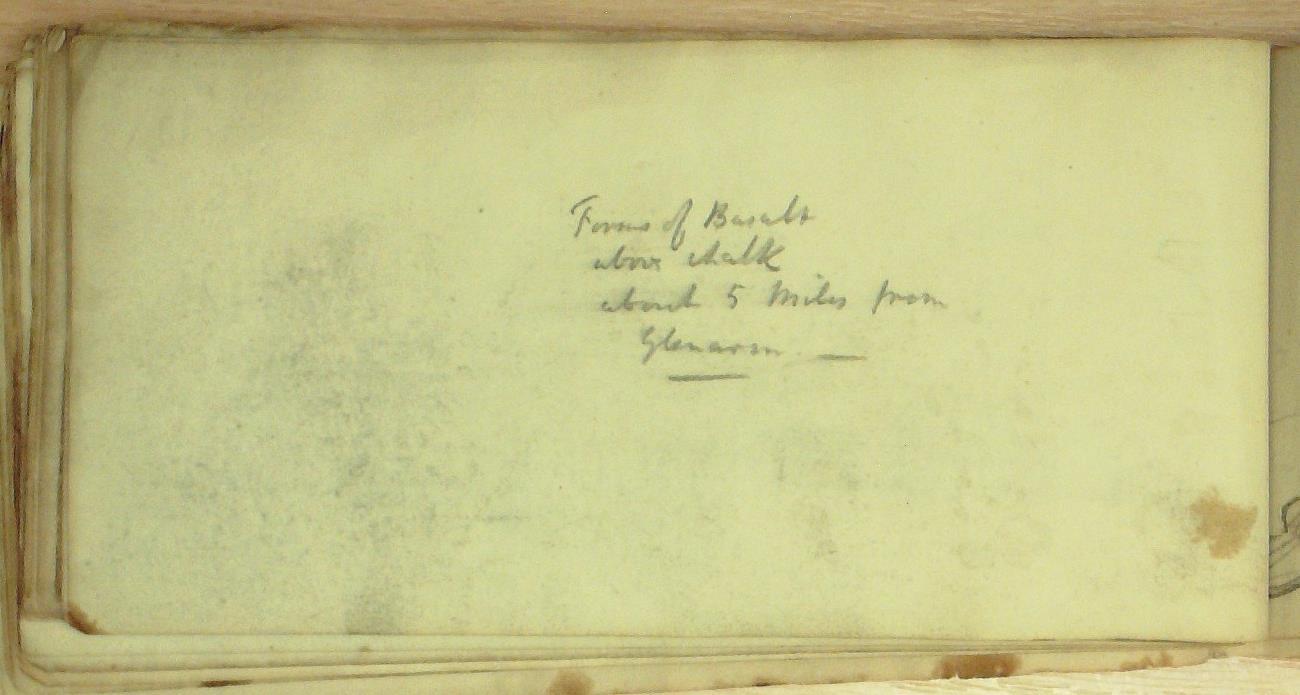 Forms of Basalt
above chalk
about 5 Miles from
Glenarm —